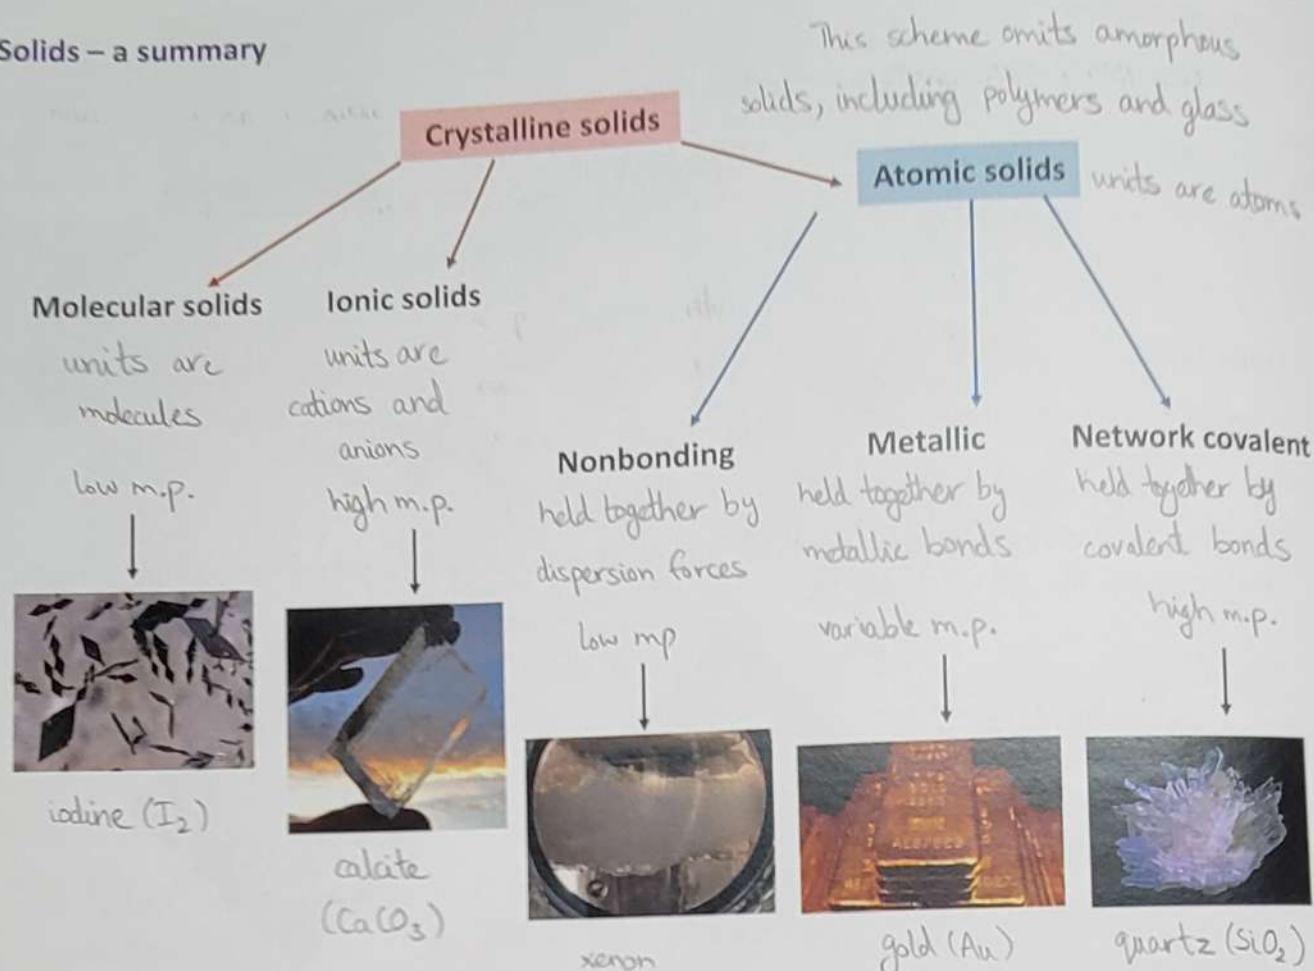 Solids – a summary
This scheme omits amorphous
solids, including polymers and glass
Crystalline solids
Atomic solids
units are atoms
Molecular solids
units are
molecules
low m.p.
iodine (I₂)
Ionic solids
units are
cations and
anions
high m.p.
calcite
(CaCO₃)
Nonbonding
held together by
dispersion forces
low mp
xenon
Metallic
held together by
metallic bonds
variable m.p.
gold (Au)
Network covalent
held together by
covalent bonds
high m.p.
quartz (SiO₂)